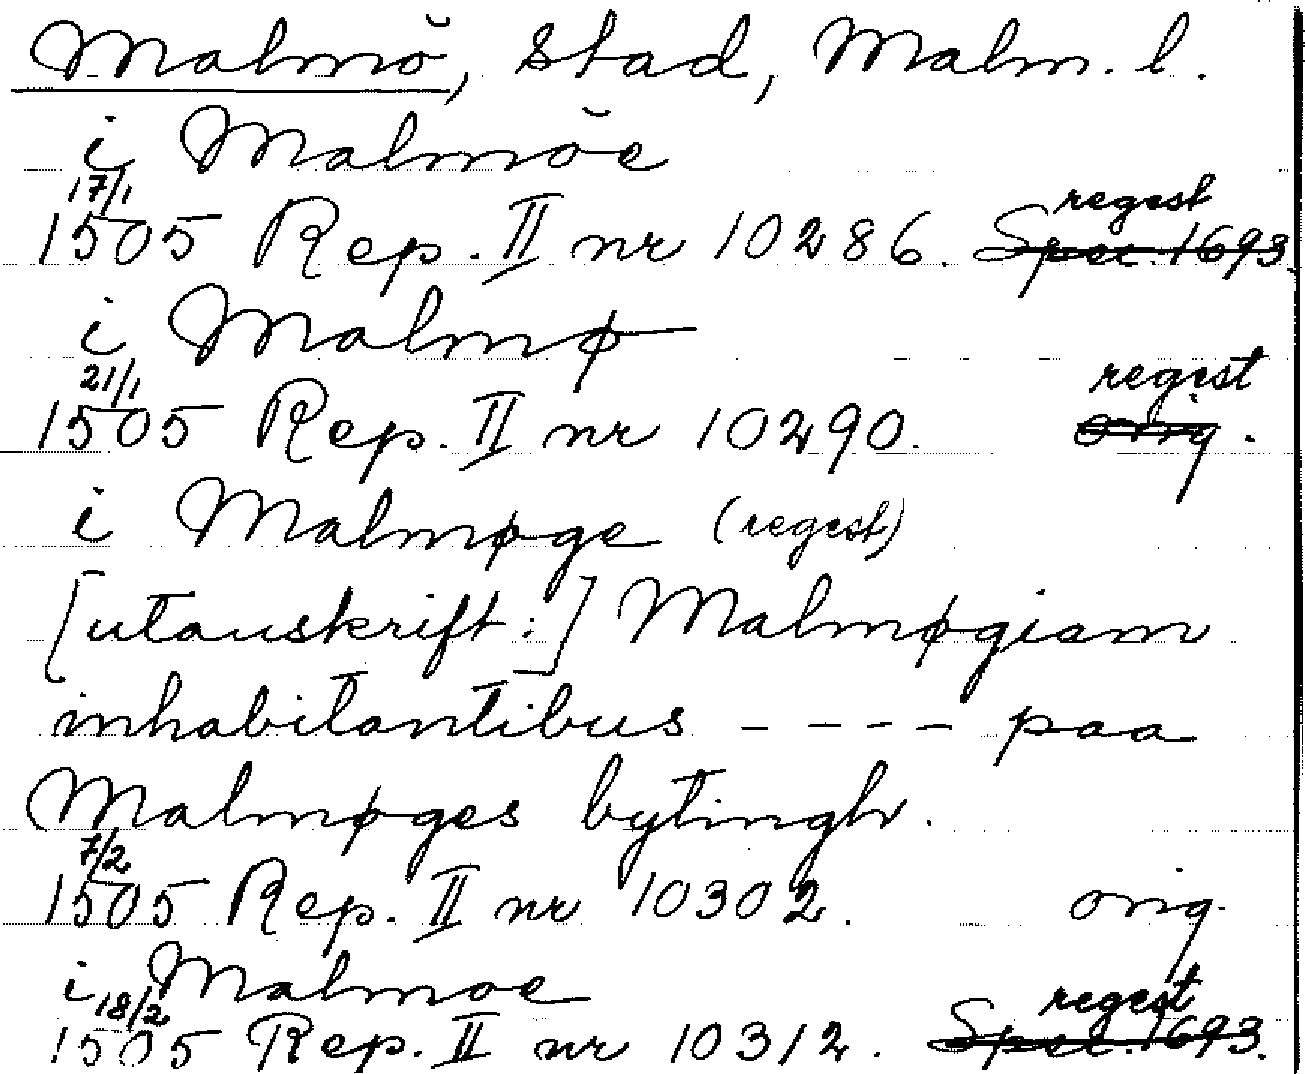 Malmö, stad, Malm. l.
i Malmöe
17/1
regest
1505 Rep. II nr 10286. Spec. 1693
i Malmø
21/1
regest
1505 Rep. II nr 10290. orig.
i Malmøge (regest)
[utanskrift:] Malmøgiam
inhabitantibus - - - - paa
Malmøges bytingh.
7/2
1505 Rep. II nr 10302. orig.
i Malmoe
18/2
regest
1505 Rep. II nr 10312. Spec. 1693.